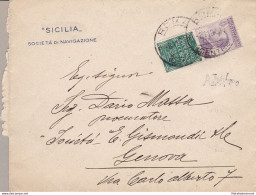 "SICILIA"
SOCIETÀ DI NAVIGAZIONE
Egr. Signor
Sig. Dario Massa
procuratore
"Società E. Gismondi & C.
Genova
Via Carlo Alberto 7